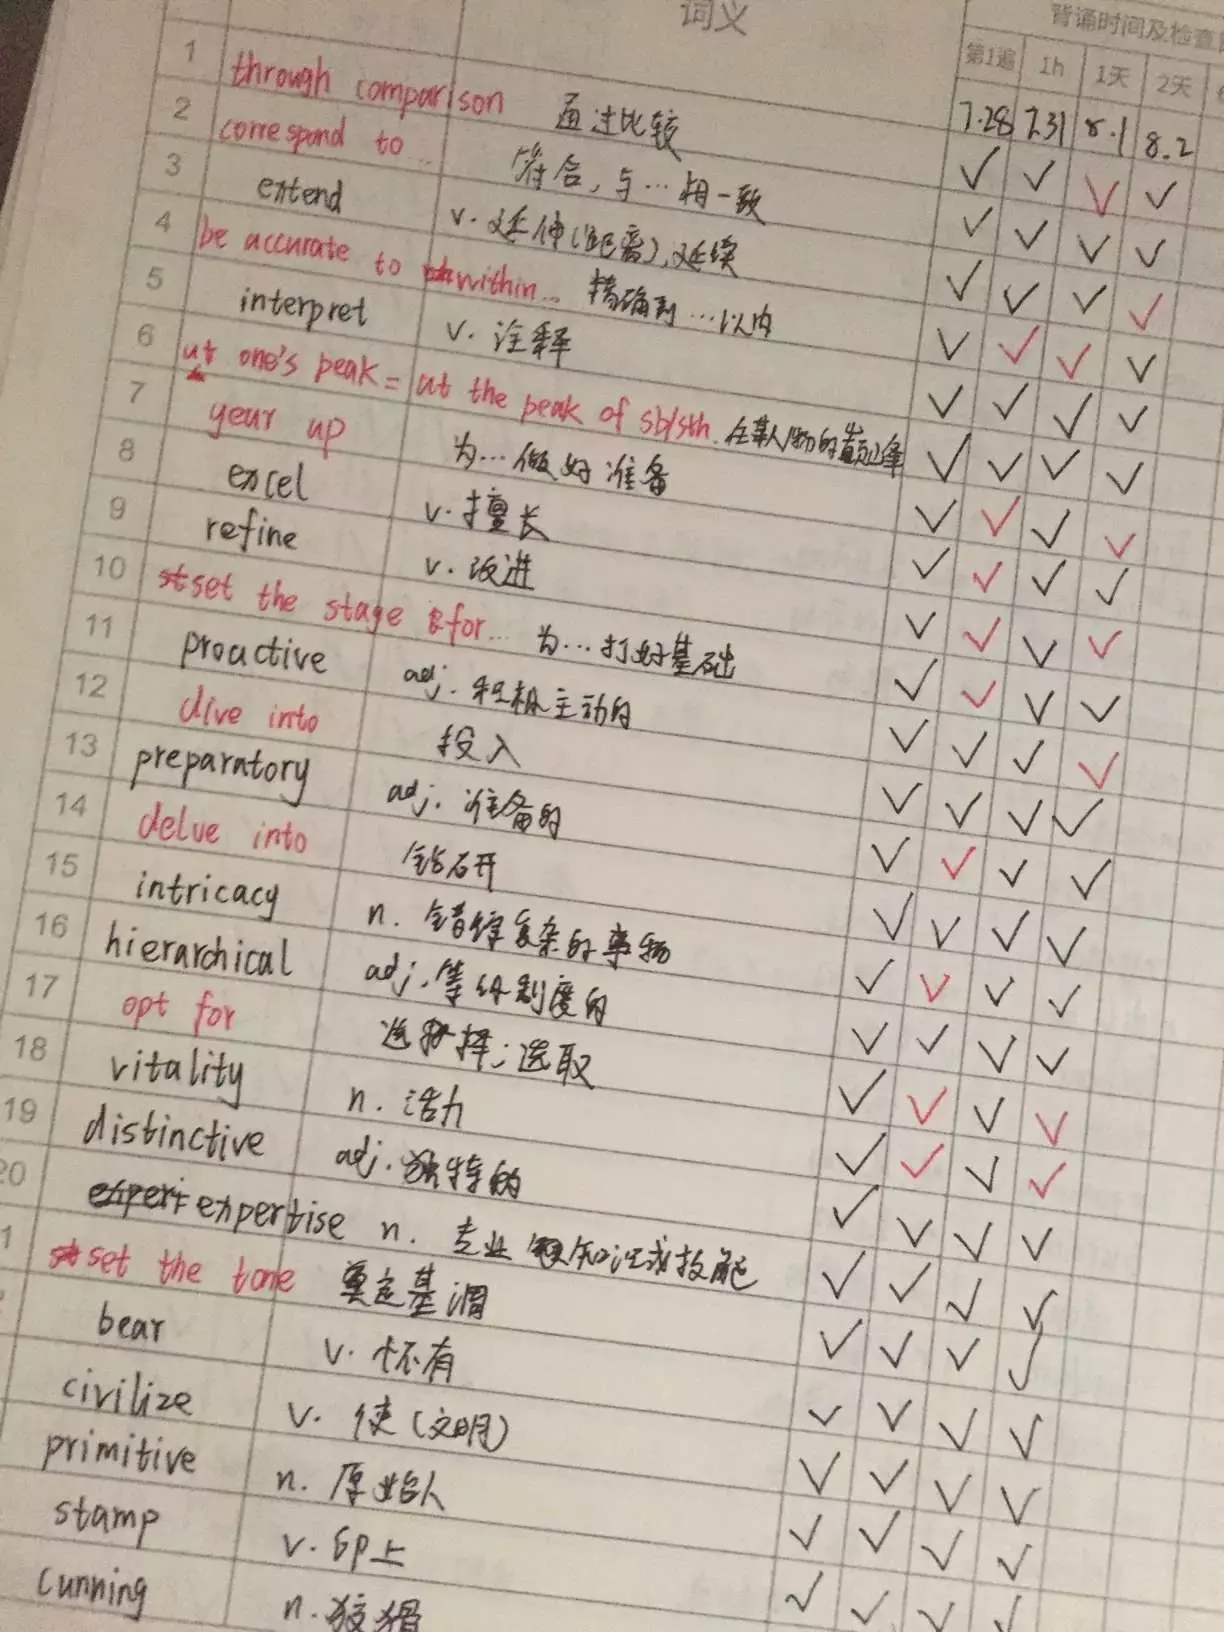 词义
背诵时间及检查
第1遍 1h 1天 2天
7.28 7.31 8.1 8.2
1 through comparison 通过比较
2 correspond to... 符合,与…相一致
3 extend v. 延伸(距离),延续
4 be accurate to within... 精确到…以内
5 interpret v. 诠释
6 at one's peak = at the peak of sb/sth. 在某人/物的巅峰
7 gear up 为…做好准备
8 excel v. 擅长
9 refine v. 改进
10 set the stage for... 为…打好基础
11 proactive adj. 积极主动的
12 dive into 投入
13 preparatory adj. 准备的
14 delve into 钻研
15 intricacy n. 错综复杂的事物
16 hierarchical adj. 等级制度的
17 opt for 选择;选取
18 vitality n. 活力
19 distinctive adj. 独特的
20 expertise n. 专业知识或技能
1 set the tone 奠定基调
bear v. 怀有
civilize v. 使(文明)
primitive n. 原始人
stamp v. 印上
cunning n. 狡猾